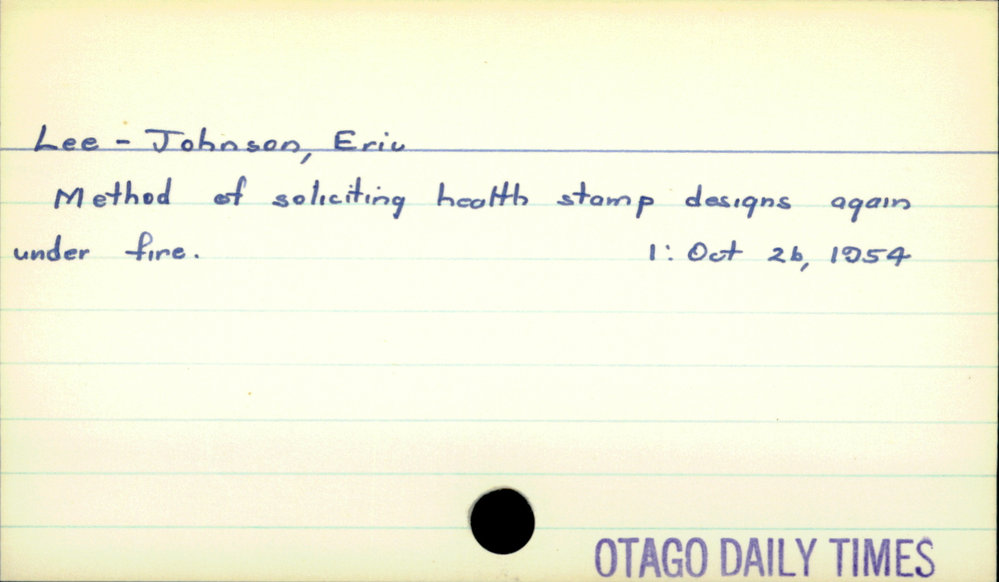 Lee - Johnson, Eric
Method of soliciting health stamp designs again
under fire. 1: Oct 26, 1954
OTAGO DAILY TIMES